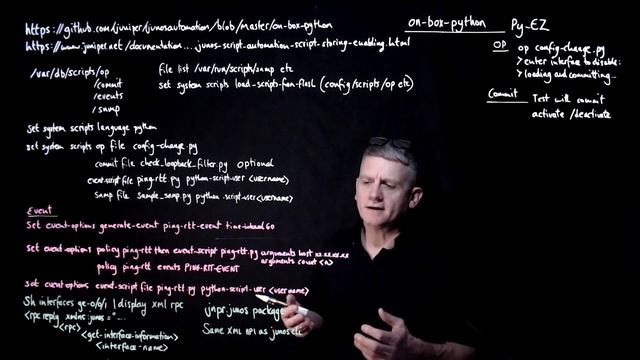 https://github.com/juniper/junosautomation/blob/master/on-box-python
https://www.juniper.net/documentation....junos-script-automation-script-storing-enabling.html
/var/db/scripts/op
/commit
/events
/snmp
file list /var/run/scripts/snmp etc
set system scripts load-scripts-from-flash (config/scripts/op etc)
Set system scripts language python
set system scripts op file config-change.py
commit file check_loopback_filter.py optional
event-script file ping-rtt.py python-script-user <username>
snmp file sample_snmp.py python-script-user <username>
Event
Set event-options generate-event ping-rtt-event time-interval 60
Set event-options policy ping-rtt then event-script ping-rtt.py arguments host xx.xx.xx.xx
arguments count <n>
policy ping-rtt events PING-RTT-EVENT
set event-options event-script file ping-rtt.py python-script-user <username>
Sh interfaces ge-0/0/1 | display xml rpc
<rpc reply xmlns:junos="...
<rpc>
<get-interface-information>
<interface-name>
jnpr.junos package
Same XML API as junos cli
on-box-python Py-EZ
OP op config-change.py
> enter interface to disable:
> loading and committing...
Commit Test with commit
activate/deactivate